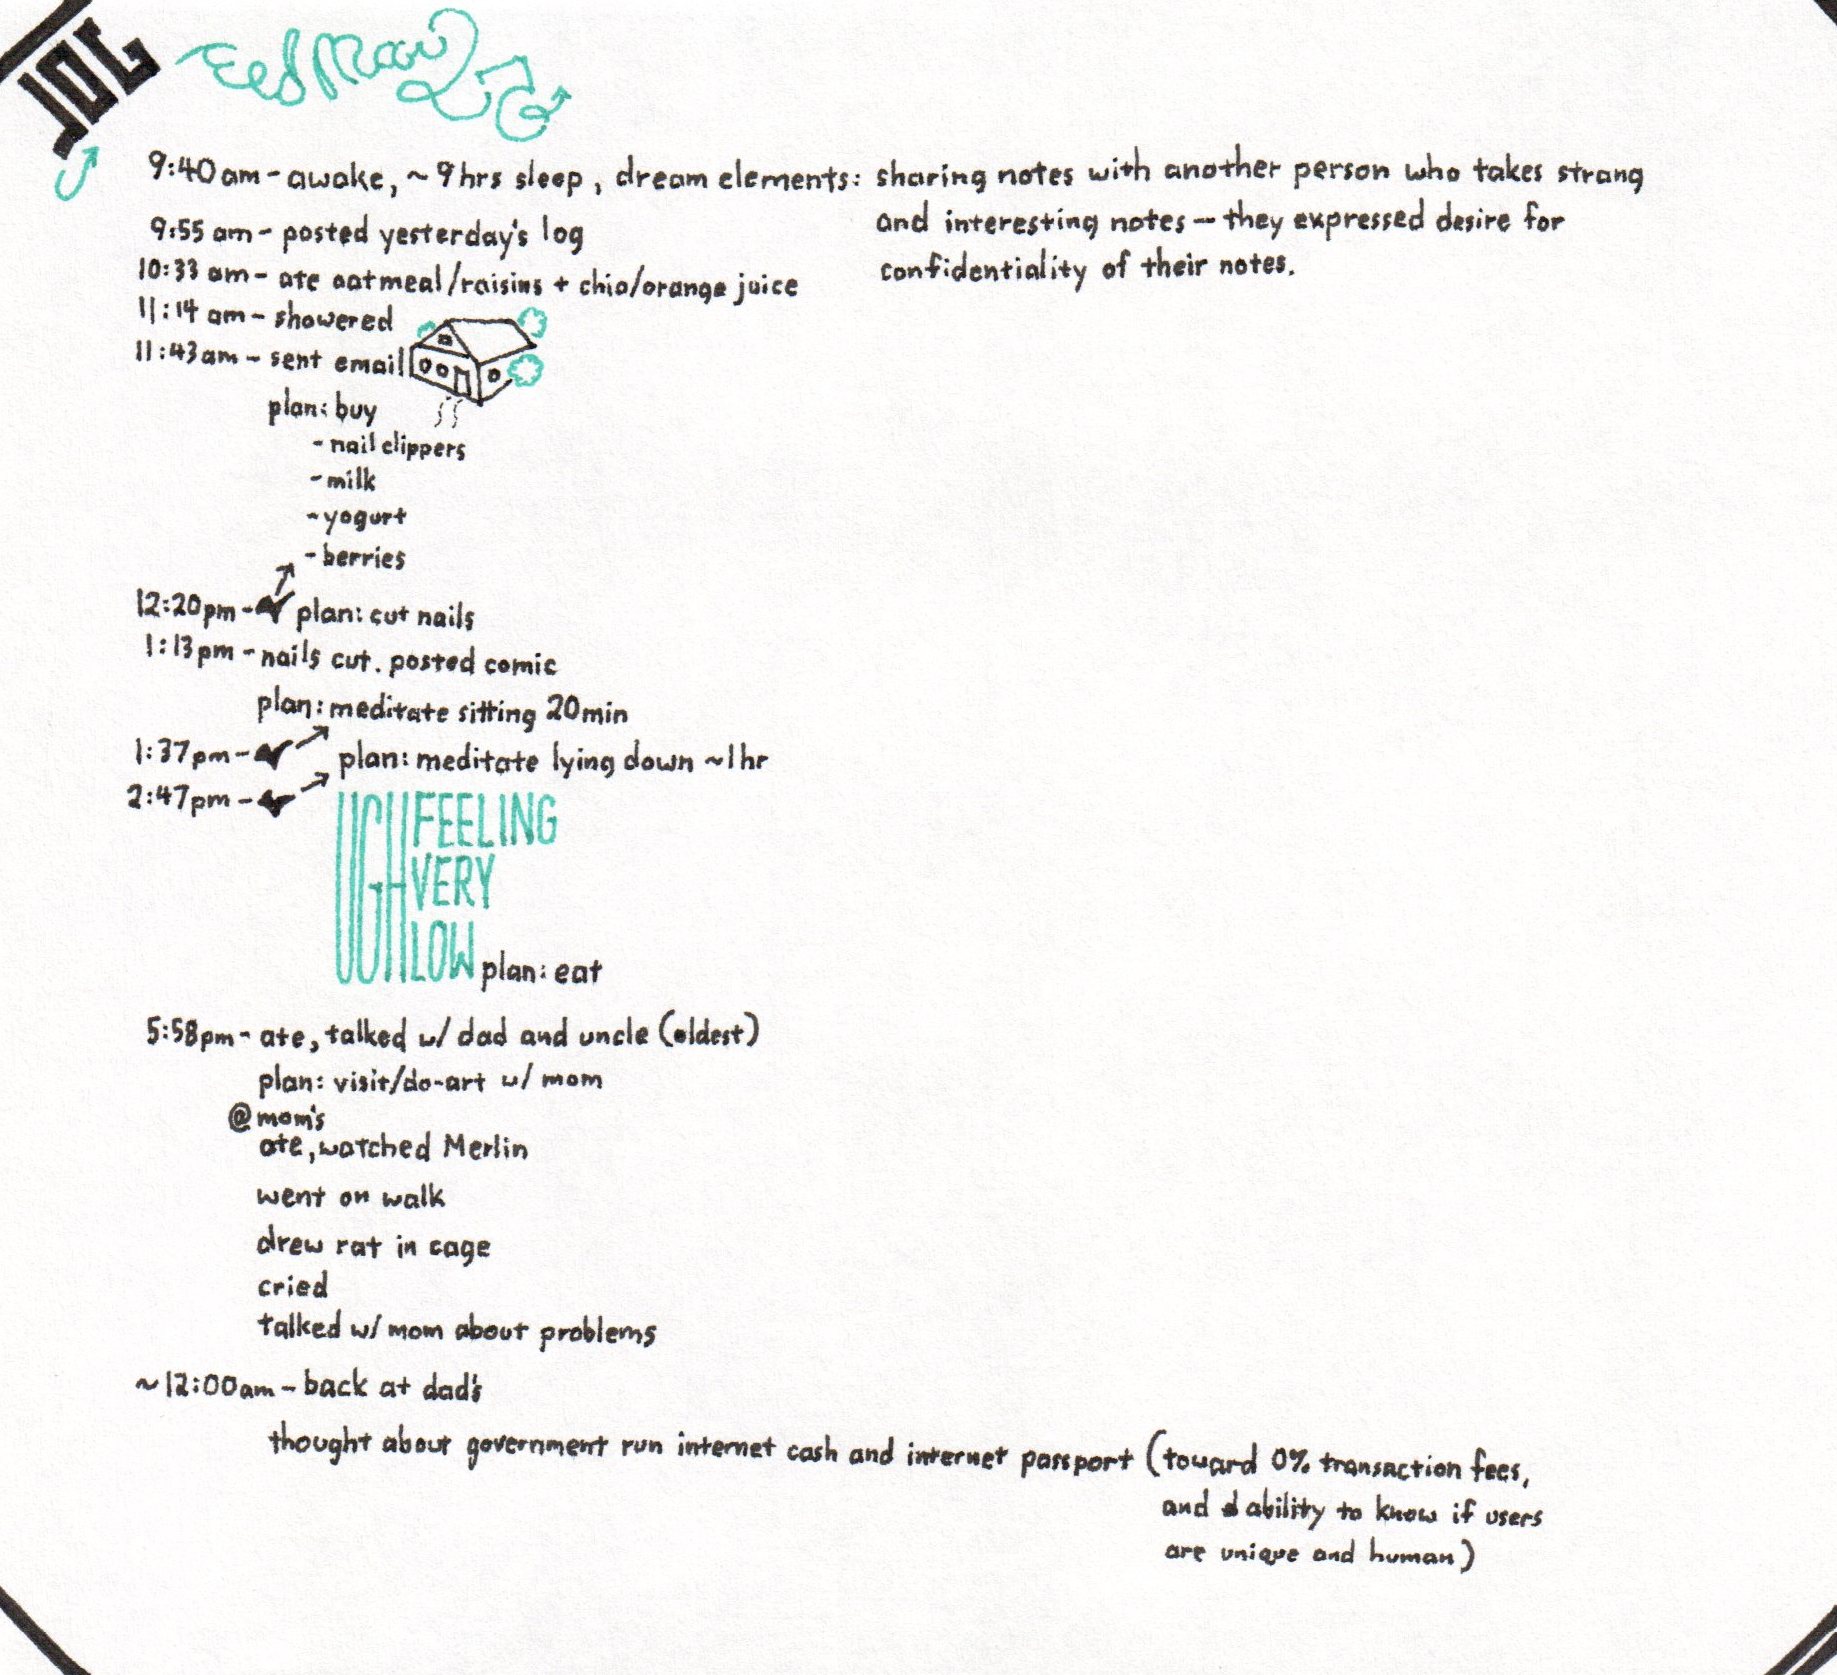 LOG
9:40am - awake, ~9hrs sleep, dream elements: sharing notes with another person who takes strang
and interesting notes — they expressed desire for
confidentiality of their notes.
9:55 am - posted yesterday's log
10:33 am - ate oatmeal/raisins + chia/orange juice
11:14 am - showered
11:43am - sent email
plan: buy
- nail clippers
- milk
- yogurt
- berries
12:20pm - ✔ plan: cut nails
1:13pm - nails cut. posted comic
plan: meditate sitting 20min
1:37pm - ✔ plan: meditate lying down ~1hr
2:47pm - ✔
UGH FEELING
VERY
LOW plan: eat
5:58pm - ate, talked w/ dad and uncle (oldest)
plan: visit/do-art w/ mom
@mom's
ate, watched Merlin
went on walk
drew rat in cage
cried
talked w/ mom about problems
~12:00am - back at dad's
thought about government run internet cash and internet passport (toward 0% transaction fees,
and ability to know if users
are unique and human)